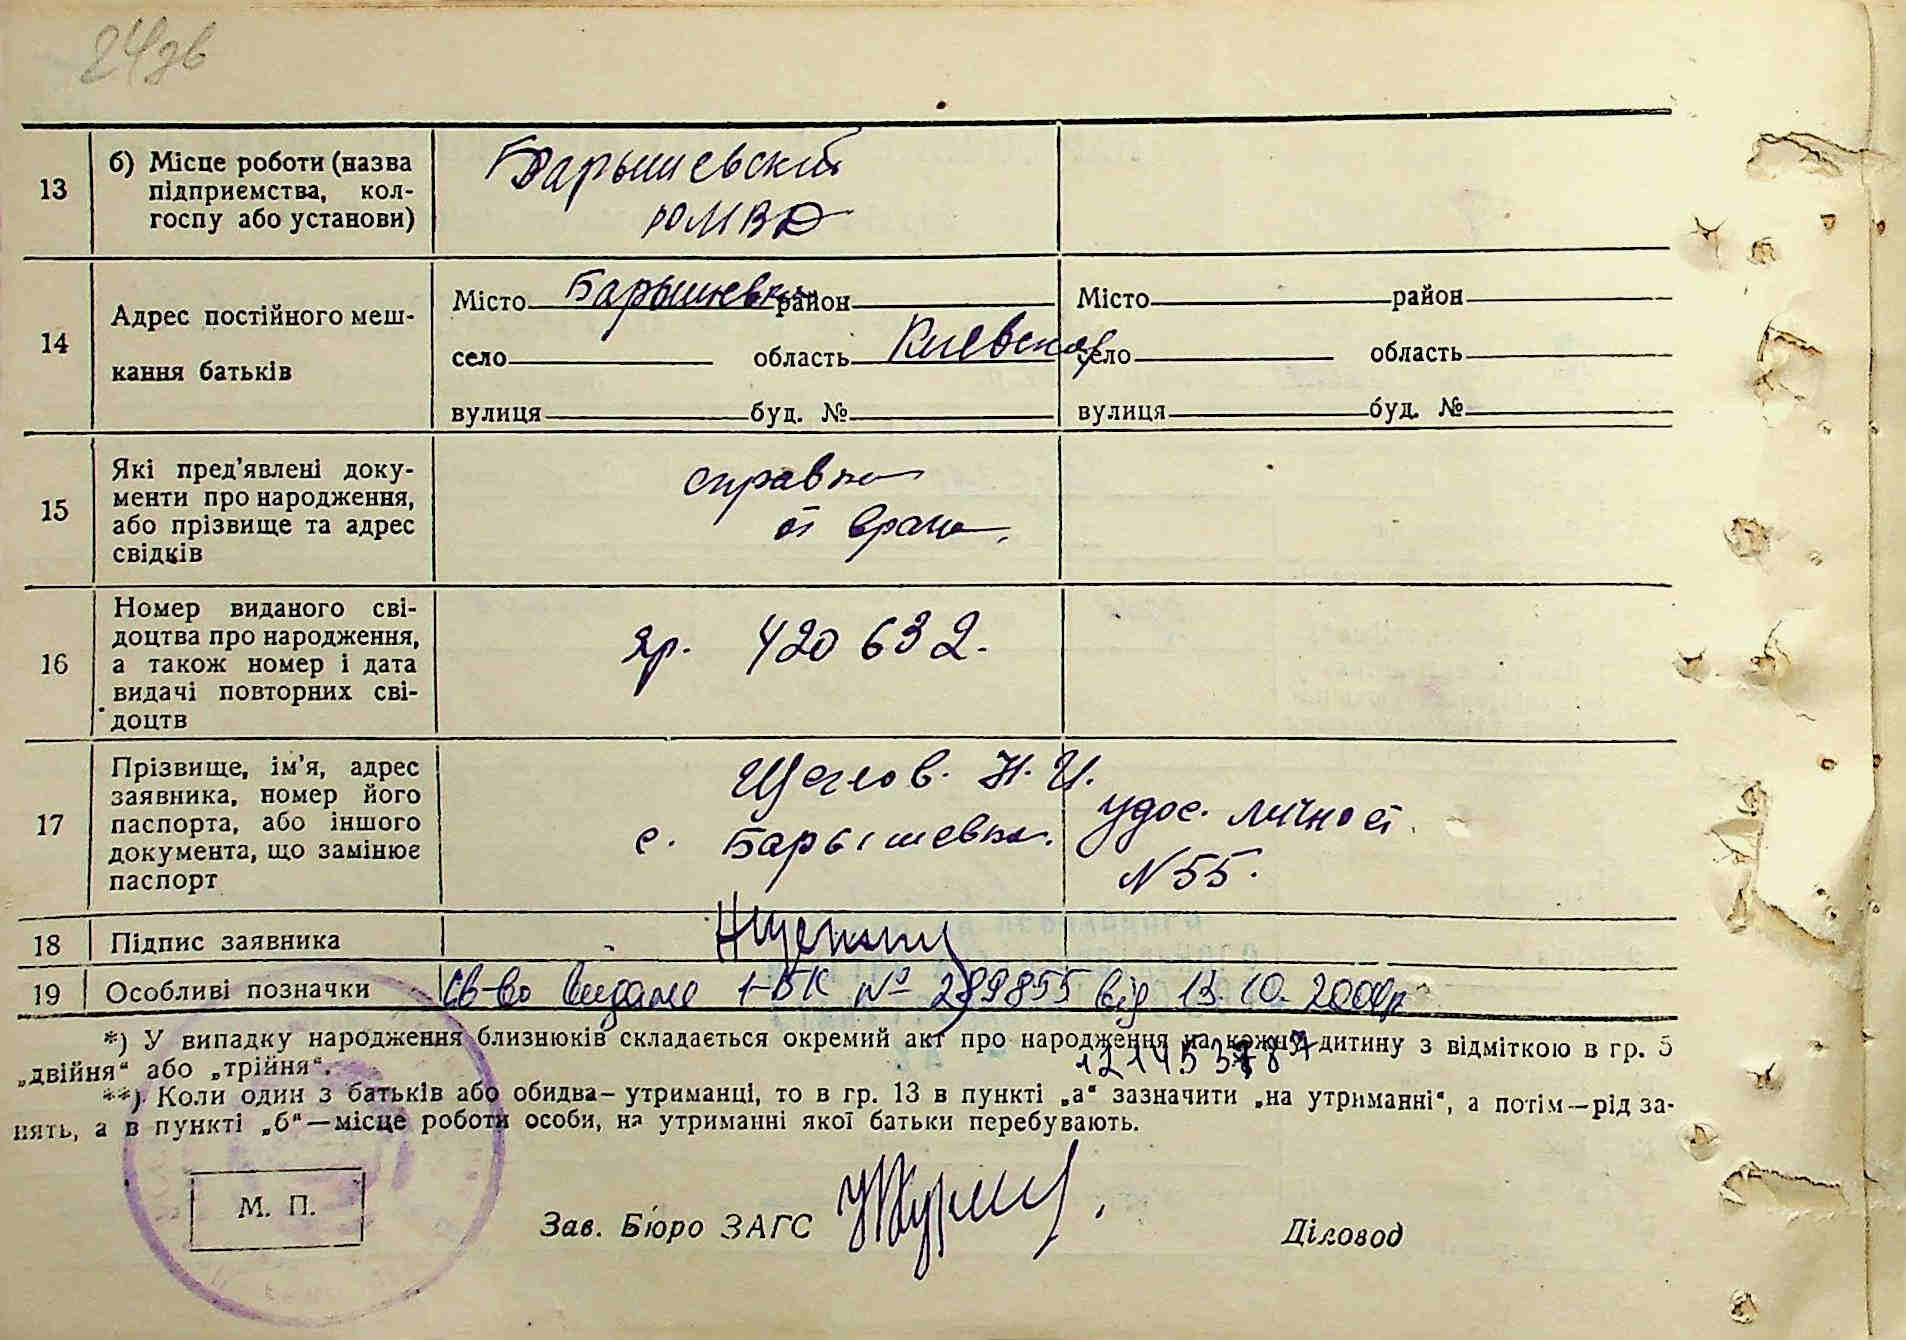 24зв
13
б) Місце роботи (назва
підприємства, кол-
госпу або установи)
Барышевский
РОМВД
14
Адрес постійного меш-
кання батьків
Місто Барышевка район
село область Киевская
вулиця буд. №
Місто район
село область
вулиця буд. №
15
Які пред'явлені доку-
менти про народження,
або прізвище та адрес
свідків
справка
от врача.
16
Номер виданого сві-
доцтва про народження,
а також номер і дата
видачі повторних сві-
доцтв
яр. 420632.
17
Прізвище, ім'я, адрес
заявника, номер його
паспорта, або іншого
документа, що замінює
паспорт
Щеглов. Н. И.
с. Барышевка.
удос. личност
№ 55.
18
Підпис заявника
19
Особливі позначки
Св-во видане 1-БК № 299855 від 13.10.2000р
*) У випадку народження близнюків складається окремий акт про народження на кожну дитину з відміткою в гр. 5
„двійня“ або „трійня“.
**) Коли один з батьків або обидва—утриманці, то в гр. 13 в пункті „а“ зазначити „на утриманні“, а потім—рід за-
нять, а в пункті „б“—місце роботи особи, на утриманні якої батьки перебувають.
М. П.
Зав. Бюро ЗАГС
Діловод